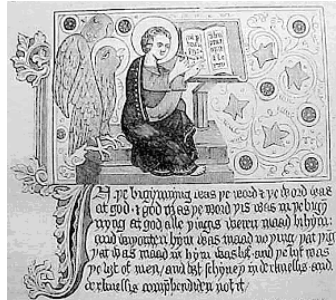 In þe bigynnyng was þe word & þe word was
at god · & god was þe word þis was in þe bigyn
nyng at god · alle þingis weren maad bi hym:
and wiþouten hym was maad no þing · þat þing
þat was maad in hym was lyf · and þe lyf was
þe lyȝt of men / and lyȝt schyneþ in derknessis · and
derknessis comprehendiden not it /